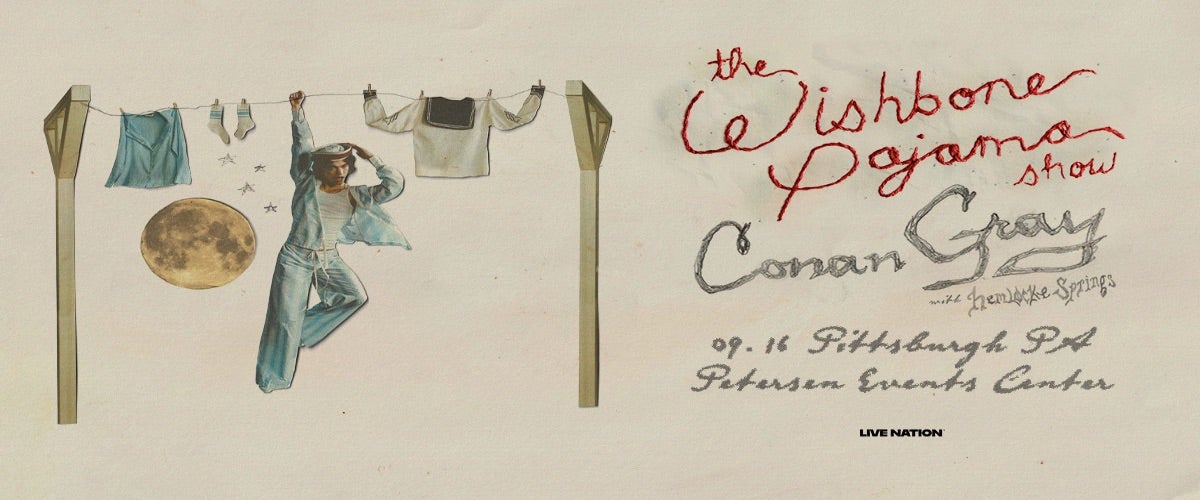 the
Wishbone
Pajama
show
Conan Gray
with hemlocke Springs
09.16 Pittsburgh PA
Petersen Events Center
LIVE NATION